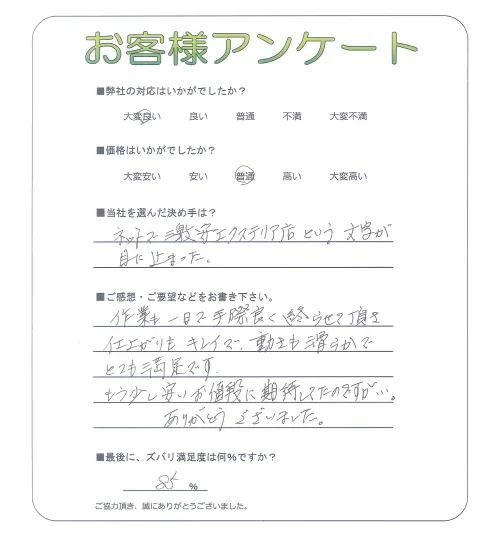 お客様アンケート
■弊社の対応はいかがでしたか？
大変良い 良い 普通 不満 大変不満
■価格はいかがでしたか？
大変安い 安い 普通 高い 大変高い
■当社を選んだ決め手は？
ネットで激安エクステリア店という文字が
目に止まった。
■ご感想・ご要望などをお書き下さい。
作業も一日で手際良く終らせて頂き
仕上がりもキレイで、動きも滑らかで
とても満足です.
もう少し安いお値段に期待してたのですが…。
ありがとうございました。
■最後に、ズバリ満足度は何%ですか？
85 %
ご協力頂き、誠にありがとうございました。